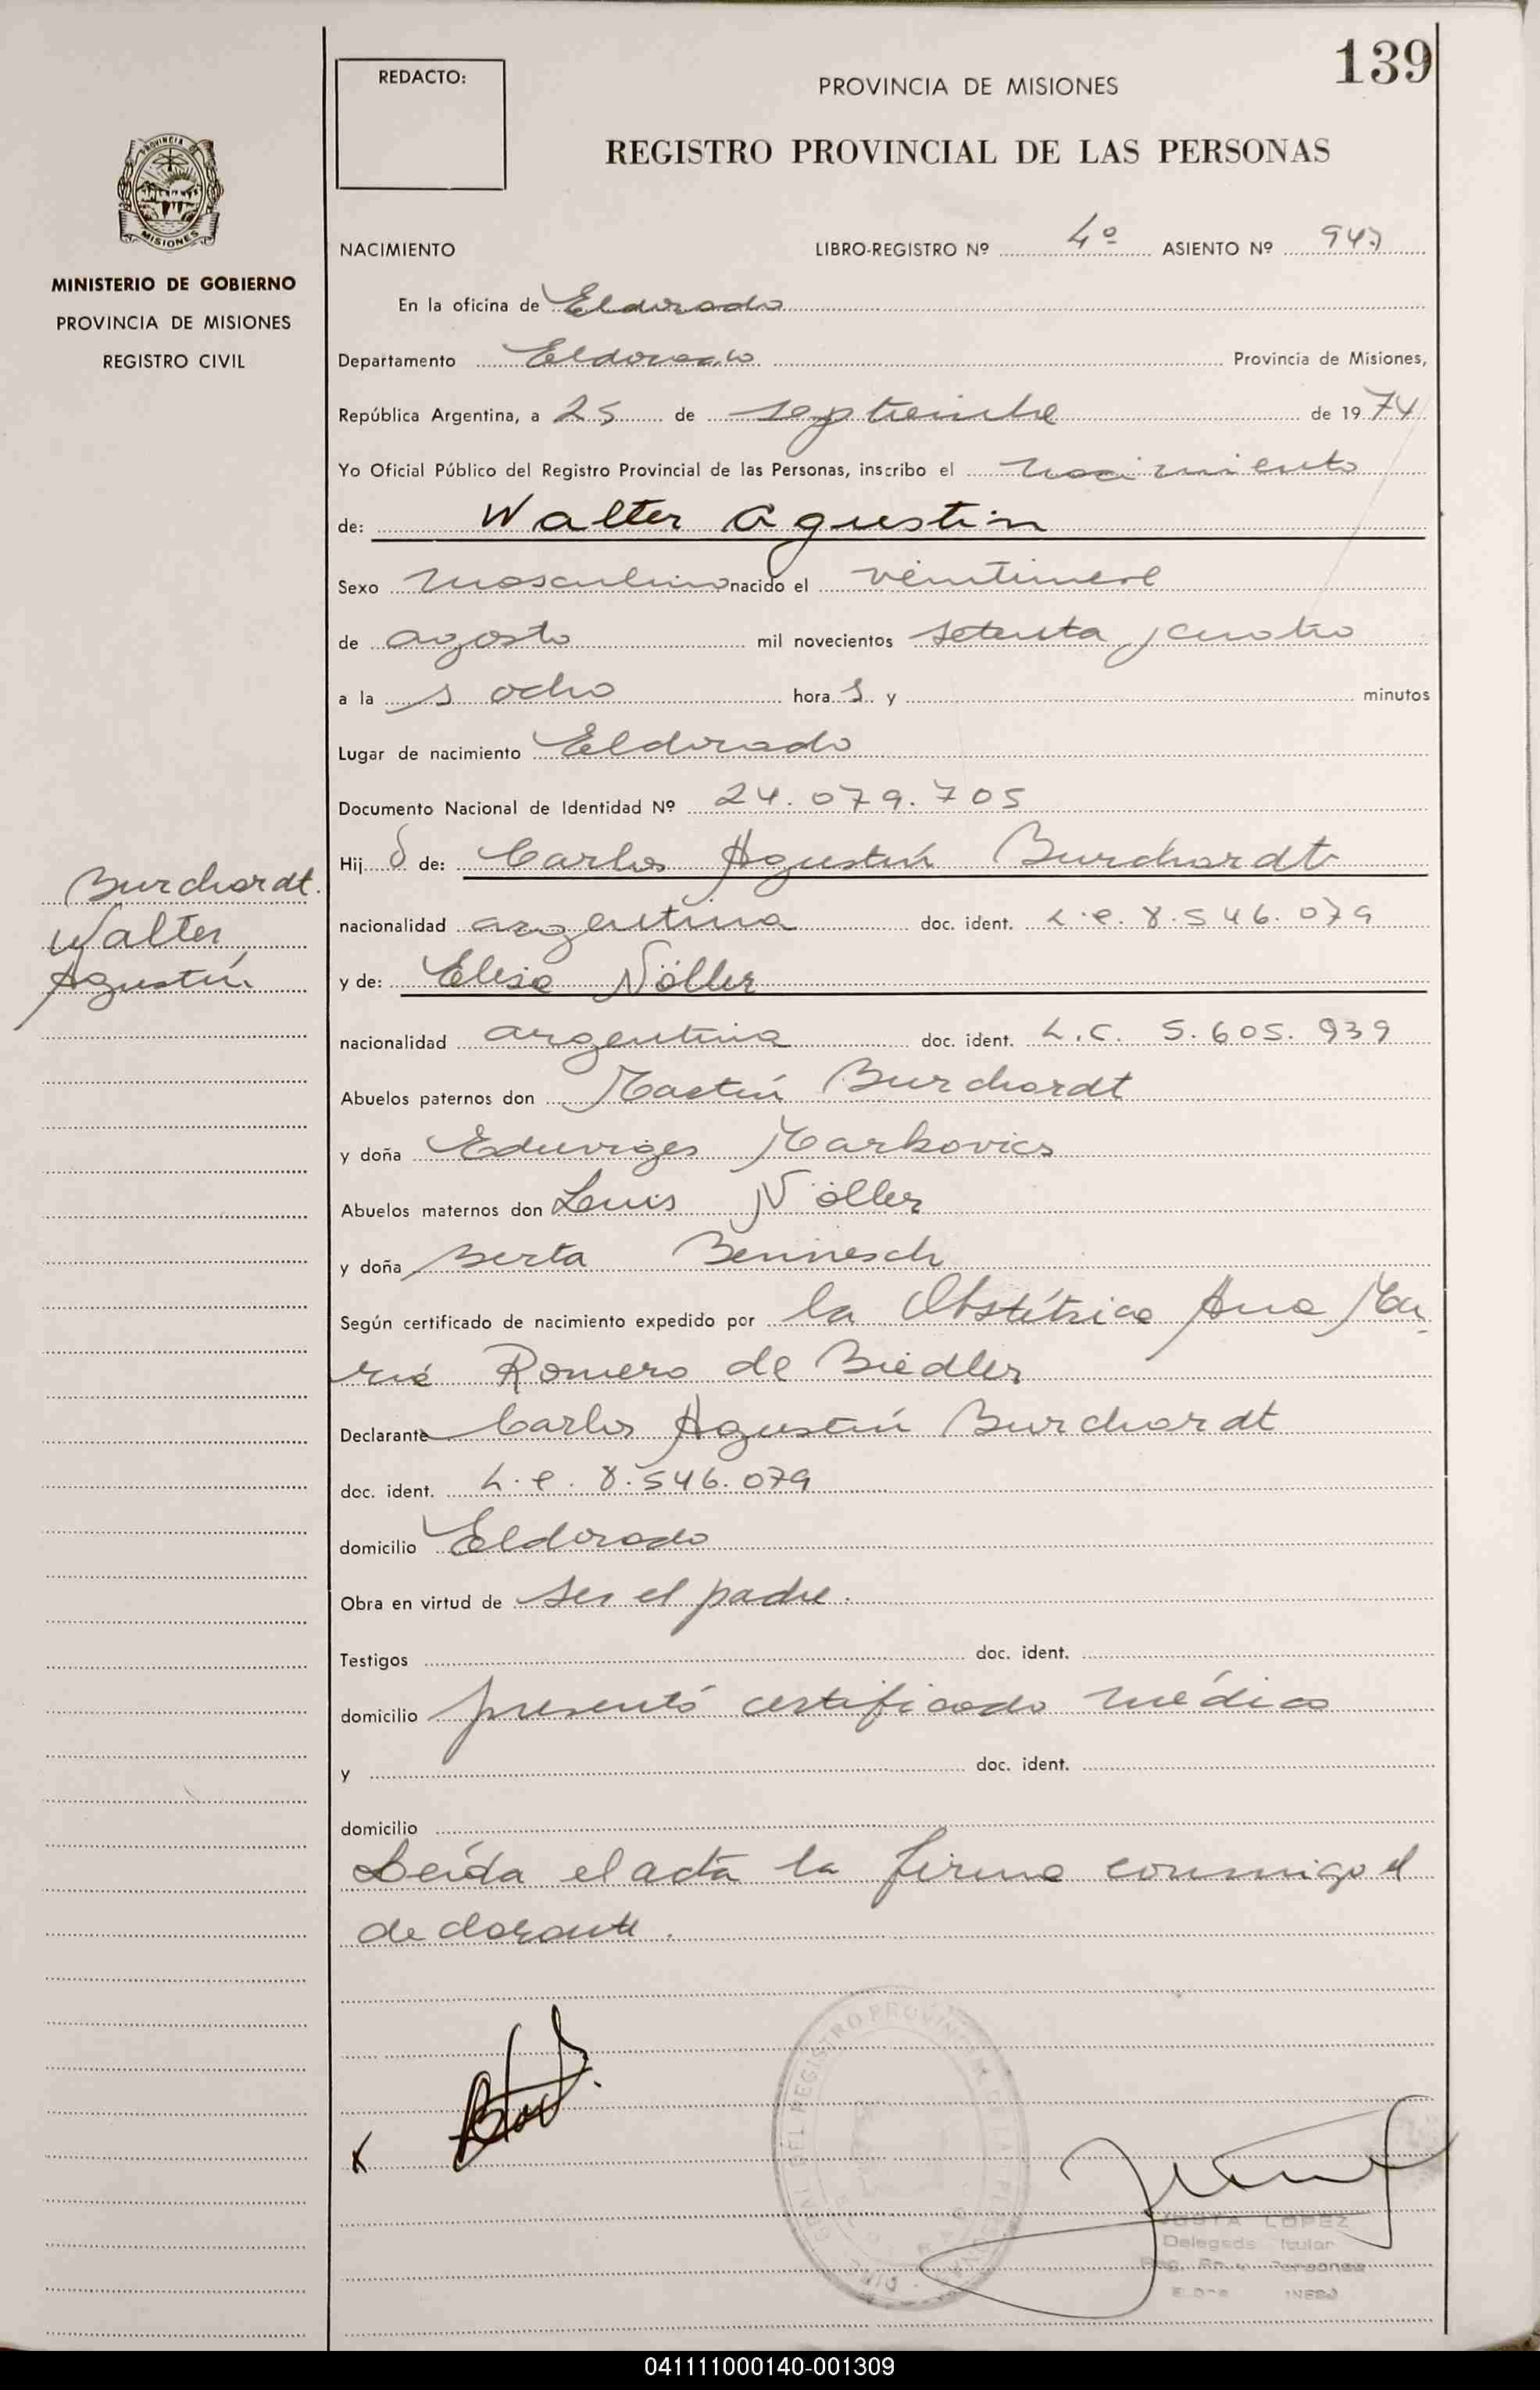 139
REDACTO:
PROVINCIA DE MISIONES
REGISTRO PROVINCIAL DE LAS PERSONAS
PROVINCIA
MISIONES
MINISTERIO DE GOBIERNO
PROVINCIA DE MISIONES
REGISTRO CIVIL
NACIMIENTO LIBRO-REGISTRO Nº 4º ASIENTO Nº 947
En la oficina de Eldorado
Departamento Eldorado Provincia de Misiones,
República Argentina, a 25 de septiembre de 1974
Yo Oficial Público del Registro Provincial de las Personas, inscribo el nacimiento
de: Walter Agustin
Sexo masculino nacido el veintinueve
de agosto mil novecientos setenta y cuatro
a la s ocho hora s y minutos
Lugar de nacimiento Eldorado
Documento Nacional de Identidad Nº 24.079.705
Hij o de: Carlos Agustín Burchardt
nacionalidad argentina doc. ident. L.e. 8.546.079
y de: Elisa Nöller
nacionalidad argentina doc. ident. L.C. 5.605.939
Abuelos paternos don Martín Burchardt
y doña Eduviges Markovics
Abuelos maternos don Luis Nöller
y doña Berta Bennesch
Según certificado de nacimiento expedido por la Obstétrica Ana Ma-
ría Romero de Biedler
Declarante Carlos Agustín Burchardt
doc. ident. L.e. 8.546.079
domicilio Eldorado
Obra en virtud de ser el padre.
Testigos doc. ident.
domicilio presentó certificado médico
y doc. ident.
domicilio
Leída el acta la firma conmigo el
declarante.
Burchardt
Walter
Agustín
x
LOPEZ
Titular
041111000140-001309